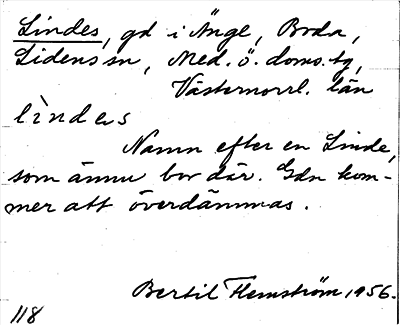 Lindes, gd i Änge, Boda,
Lidens sn, Med. ö. doms. tg,
Västernorrl. län
lìndes
Namn efter en Linde,
som ännu bor där. Gdn kom-
mer att överdämmas.
Bertil Flemström, 1956.
118